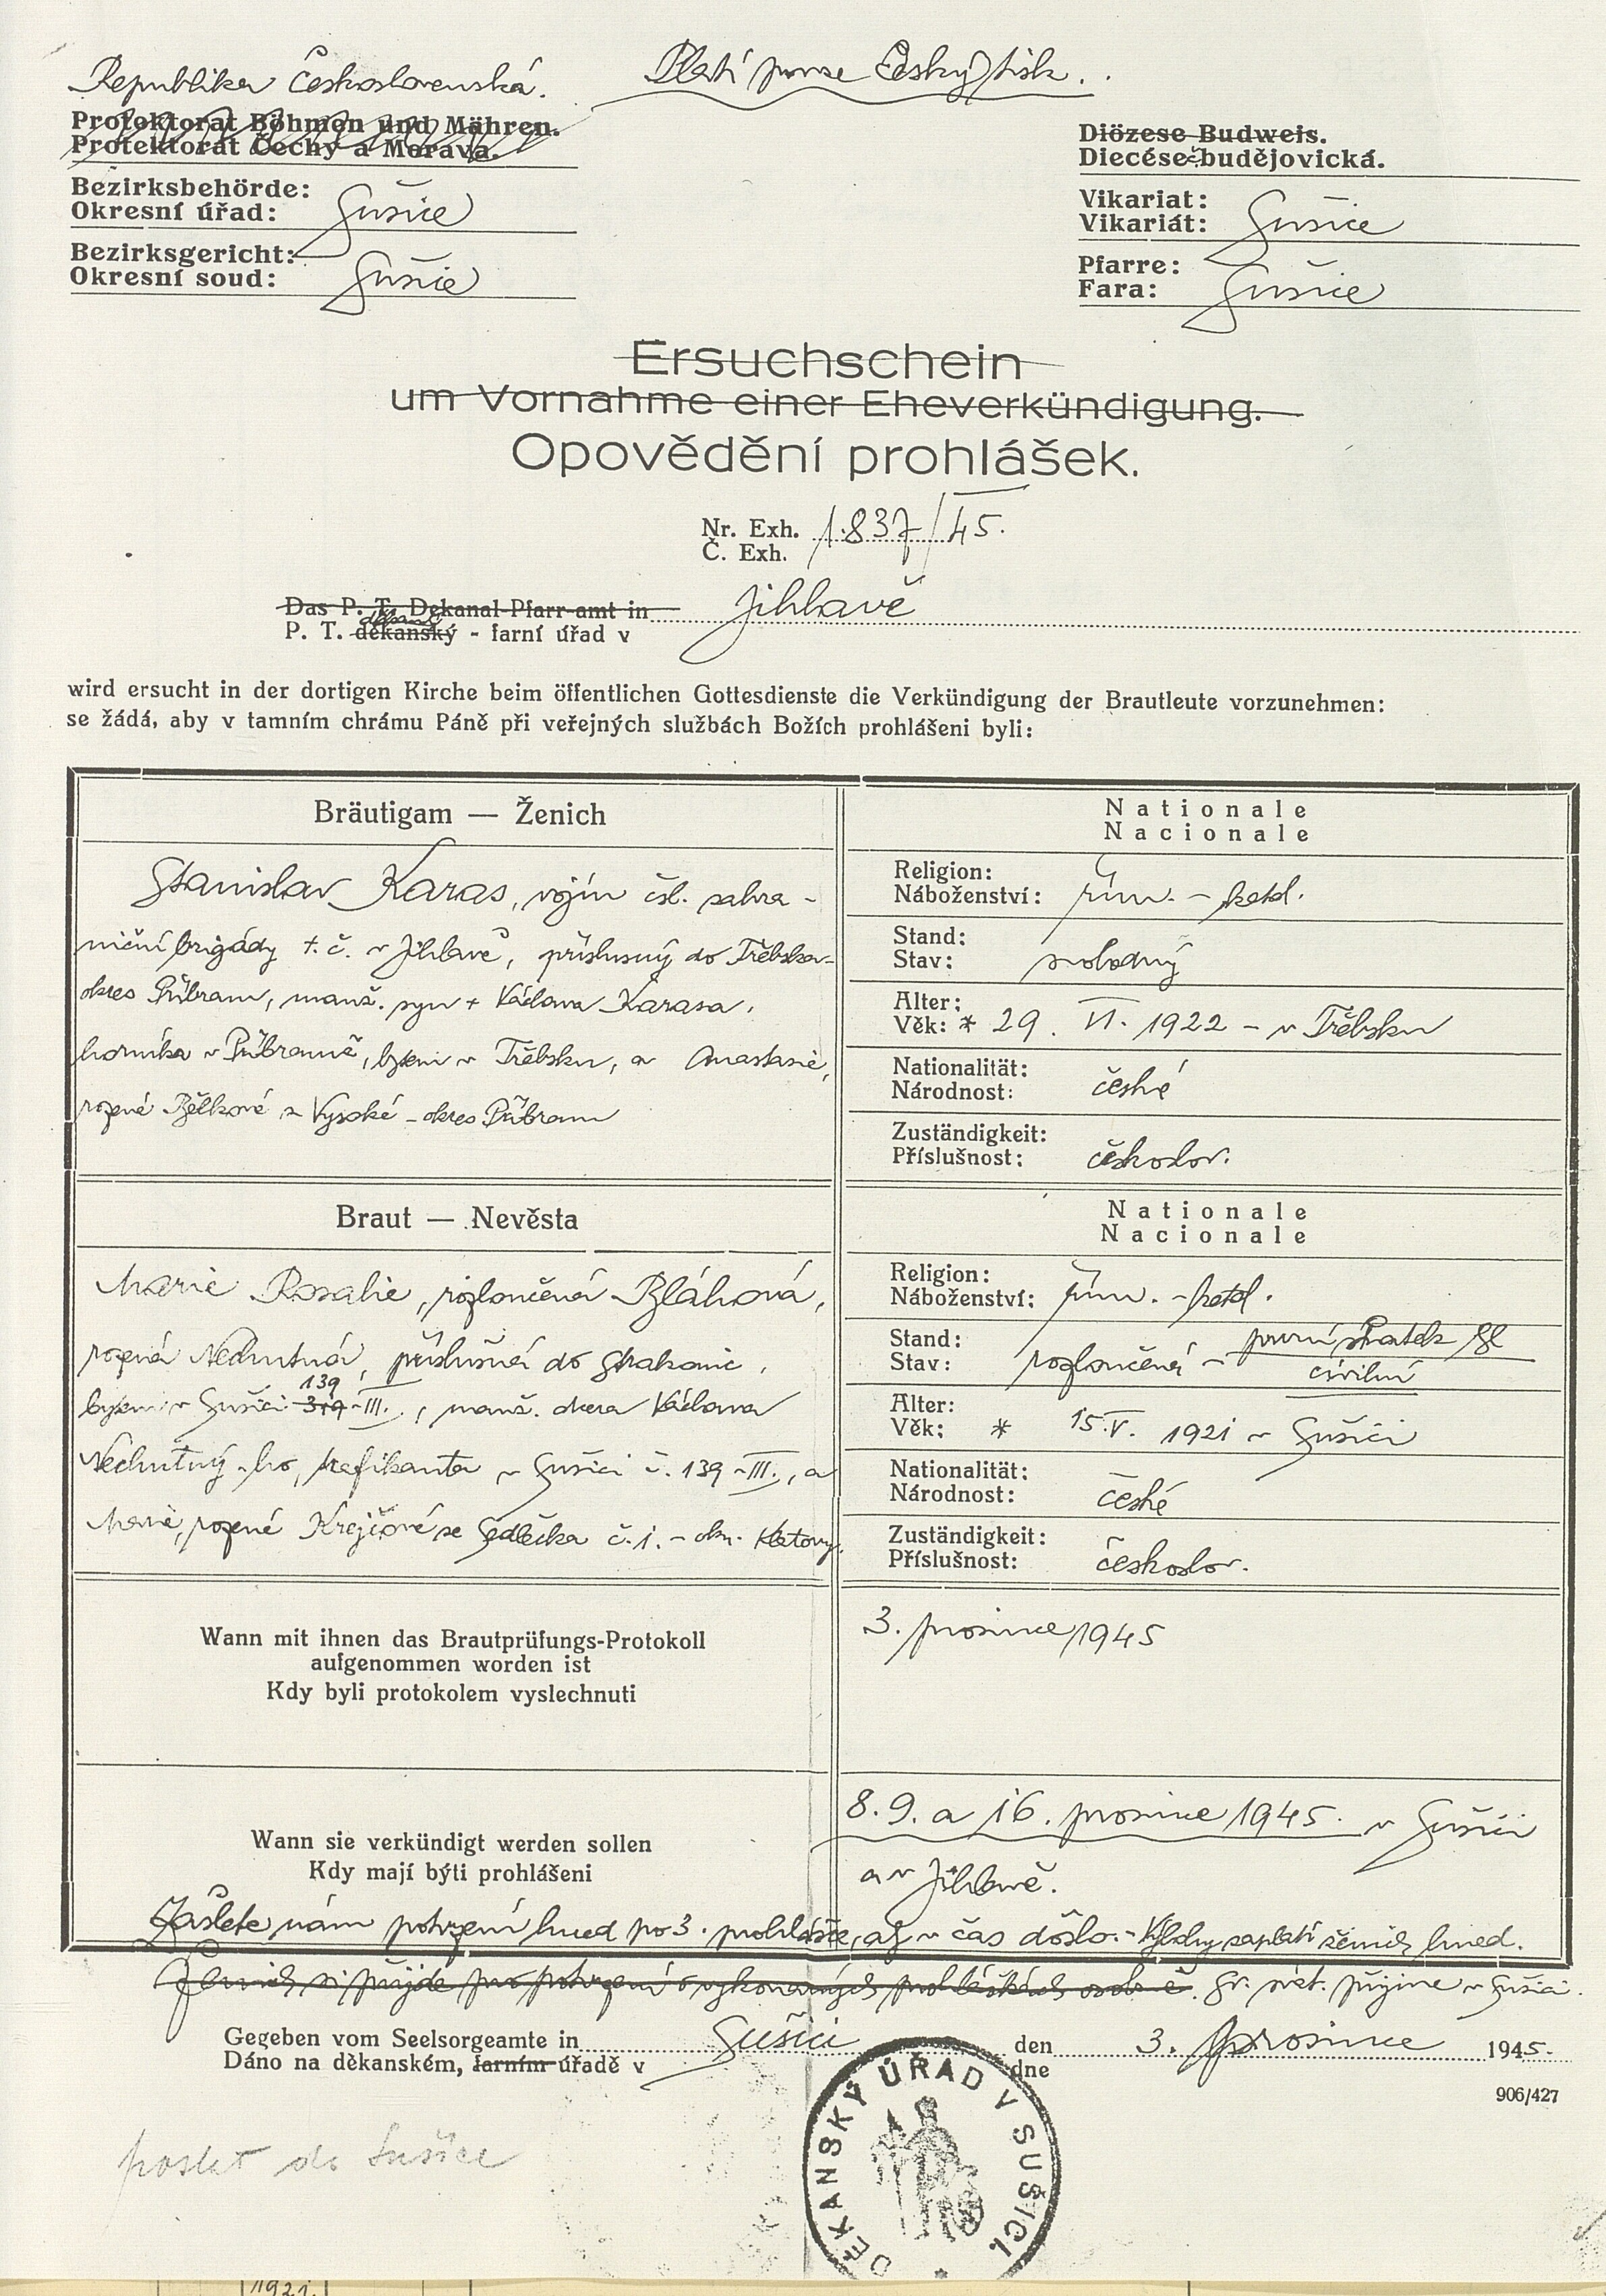 Republika Československá.
Platí pouze Český tisk.
Protektorat Böhmen und Mähren.
Protektorát Čechy a Morava.
Diözese Budweis.
Diecése č. budějovická.
Bezirksbehörde:
Okresní úřad: Sušice
Vikariat:
Vikariát: Sušice
Bezirksgericht:
Okresní soud: Sušice
Pfarre:
Fara: Sušice
Ersuchschein
um Vornahme einer Eheverkündigung.
Opovědění prohlášek.
Nr. Exh. 1.837/45.
Č. Exh.
Das P. T. Dekanal-Pfarr-amt in Jihlavě
P. T. děkanský - farní úřad v
wird ersucht in der dortigen Kirche beim öffentlichen Gottesdienste die Verkündigung der Brautleute vorzunehmen:
se žádá, aby v tamním chrámu Páně při veřejných službách Božích prohlášeni byli:
Bräutigam — Ženich
Nationale
Nacionale
Stanislav Karas, vojín čsl. zahra-
niční brigády t. č. v Jihlavě, příslušný do Třebska-
okres Příbram, manž. syn + Václava Karasa,
horníka v Příbrami, bytem v Třebsku, a Anastasie,
rozené Bělkové z Vysoké - okres Příbram
Religion:
Náboženství: řím. - katol.
Stand:
Stav: svobodný
Alter:
Věk: * 29. VI. 1922 - v Třebsku
Nationalität:
Národnost: české
Zuständigkeit:
Příslušnost: českoslov.
Braut — Nevěsta
Nationale
Nacionale
Marie Rosalie, rozloučená Bláhová,
rozená Nechutná, příslušná do Strakonic,
139
bytem v Sušici 319-III., manž. dcera Václava
Nechutný-ho, trafikanta v Sušici č. 139-III., a
Marie, rozené Krejčové ze Sedlečka č. 1. - okr. Klatovy.
Religion:
Náboženství: řím. - katol.
Stand:
Stav: rozloučená - první sňatek byl
civilní
Alter:
Věk: * 15. V. 1921 v Sušici
Nationalität:
Národnost: české
Zuständigkeit:
Příslušnost: českoslov.
Wann mit ihnen das Brautprüfungs-Protokoll
aufgenommen worden ist
Kdy byli protokolem vyslechnuti
3. prosince 1945
Wann sie verkündigt werden sollen
Kdy mají býti prohlášeni
8. 9. a 16. prosince 1945. v Sušici
a v Jihlavě.
Zašlete nám potvrzení hned po 3. prohlášce, ať v čas došlo. - Výlohy zaplatí ženich hned.
Ženich si přijde pro potvrzení o vykonaných prohláškách osobně. Sv. svát. přijme v Sušici.
Gegeben vom Seelsorgeamte in Sušici den 3. prosince 1945.
Dáno na děkanském, farním úřadě v dne
906/427
DĚKANSKÝ ÚŘAD V SUŠICI.
poslat do Sušice
1921.